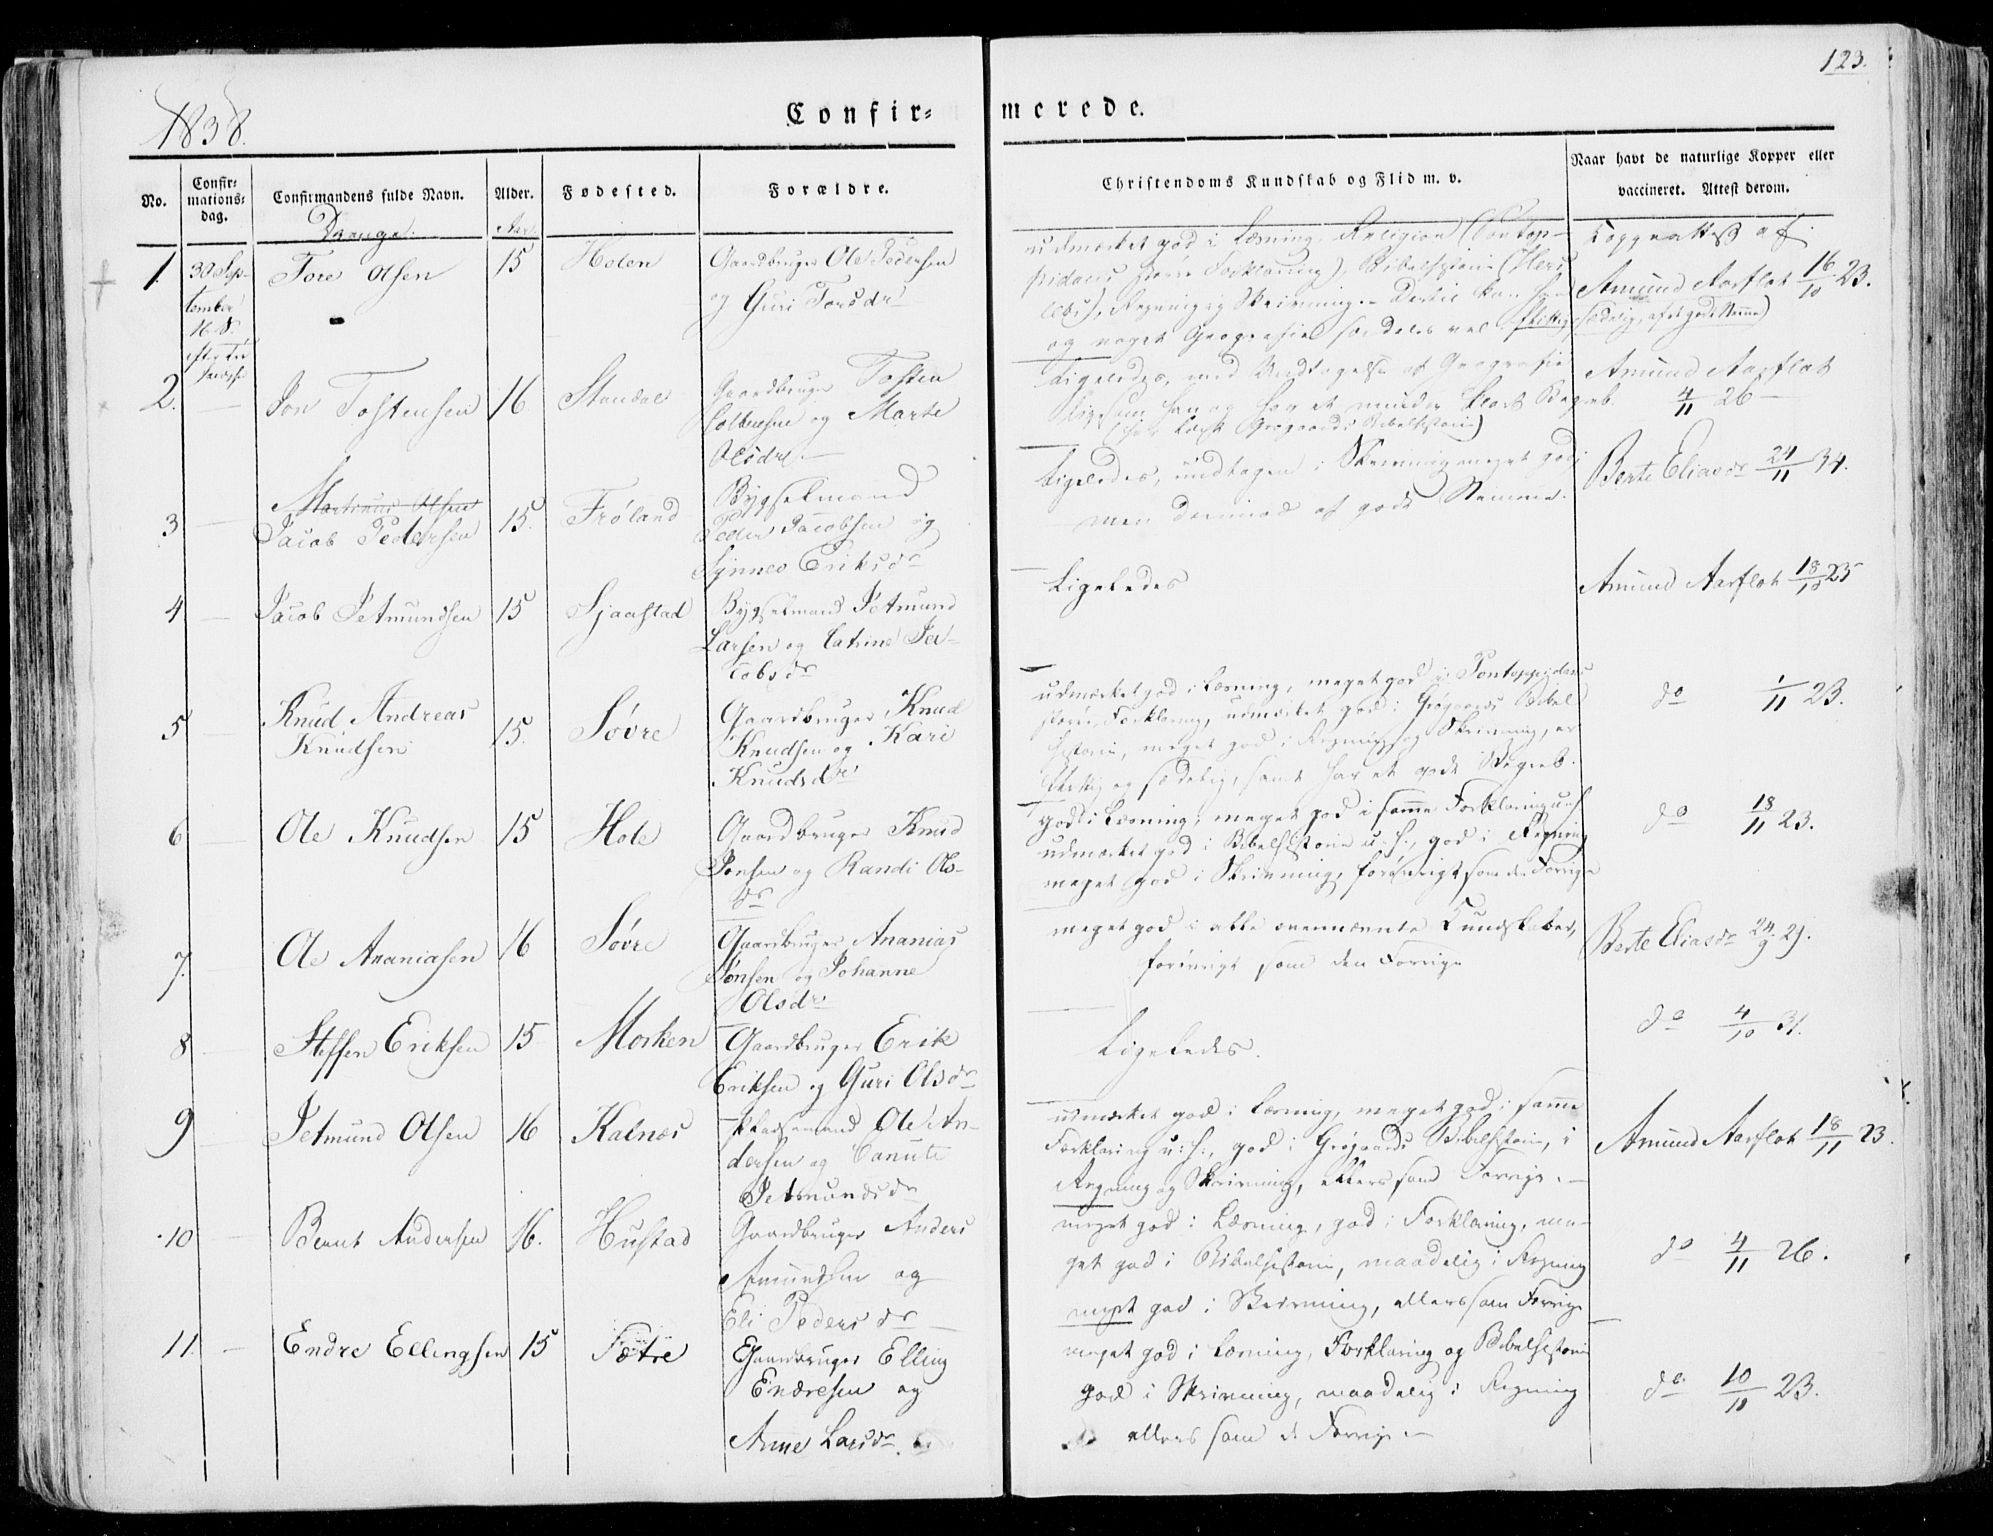 123.
1838.
Confir= merede.
No.
Confir=
mations=
dag.
Confirmandens fulde Navn.
Alder.
Fødested.
Forældre.
Christendoms Kundskab og Flid m. v.
Naar havt de naturlige Kopper eller
vaccineret. Attest derom.
Drenge.
1. 30 Sep-
tember
16 S.
Tore Olsen 15 Holen
Gaardbruger Ole Pedersen
og Guri Torsdr
udmærket god i Læsning, Religion (Pontop-
pidans større Forklaring), Bibelhistorie (Hers
lebs), Regning og Skrivning.
og noget Geografie
Koppeattest af
Amund Aarflot 16/10 23.
2. Jon Tostensen 16 Standal
Gaardbruger Tosten
og Marte
Olsdr
Ligeledes, med Undtagelse af Geografie
ligesom han og har et mindre klart Begreb
(har læst Grøgaards Bibelhistorie)
Amund Aarflot
4/11 26
3 Martinus Olsen
Jacob Pedersen 15. Frøland
Bygselmand
Peder Jacobsen og
Synnev Eriksdr
Ligeledes, undtagen i Skrivning meget god;
men af godt Nemme.
Berte Eliasdr 24/11 34.
4 Jacob Jetmundsen 15 Sjaastad
Bygselmand Jetmund
Larsen og Catrine Ja-
cobsdr
Ligeledes
Amund Aarflot 18/10 25
5 Knud Andreas
Knudsen 15. Søvre
Gaardbruger Knud
Knudsen og Kari
Knudsdr
udmærket god i Læsning, meget god i Pontoppidans
større Forklaring, udmærket god i Grøgaards Bibel
historie, meget god i Regning og Skrivning, er
flittig og sædelig, samt har et godt Begreb.
do 1/11 23.
6 Ole Knudsen 15 Hole
Gaardbruger Knud
Jonsen og Randi Ols-
dr
god i Læsning, meget god i samme Forklaring u. s.
udmærket god i Bibelhistorie u. s., god i Regning
meget god i Skrivning, forøvrigt som den Forrige
do 18/11 23.
7. Ole Ananiasen 16 Søvre
Gaardbruger Ananias
Jonsen og Johanne
Olsdr
meget god i alle ovennævnte Kundskaber,
forøvrigt som den Forrige
Berte Eliasdr 24/9 29.
8 Steffen Eriksen 15 Morken
Gaardbruger Erik
Eriksen og Guri Olsdr
Ligeledes.
do 4/10 31.
9 Jetmund Olsen 16 Kalnes
Pladsemand Ole An-
dersen og Canute
Jetmundsdr
udmærket god i Læsning, meget god i samme
Forklaring u. s., god i Grøgaards Bibelhistorie, i
Regning og Skrivning, ellers som Forrige.
Amund Aarflot 18/11 23.
10 Bernt Andersen 16. Hustad
Gaardbruger Anders
Amundsen og
Eli Pedersdr
meget god i Læsning, god i Forklaring, me-
get god i Bibelhistorie, maadelig i Regning
meget god i Skrivning, ellers som Forrige
do 4/11 26.
11 Endre Ellingsen 15 Sætre
Gaardbruger Elling
Endresen og
Anne Larsdr.
meget god i Læsning, Forklaring og Bibelhistorie
god i Skrivning, maadelig i Regning
ellers som d. Forrige
do 10/11 23.